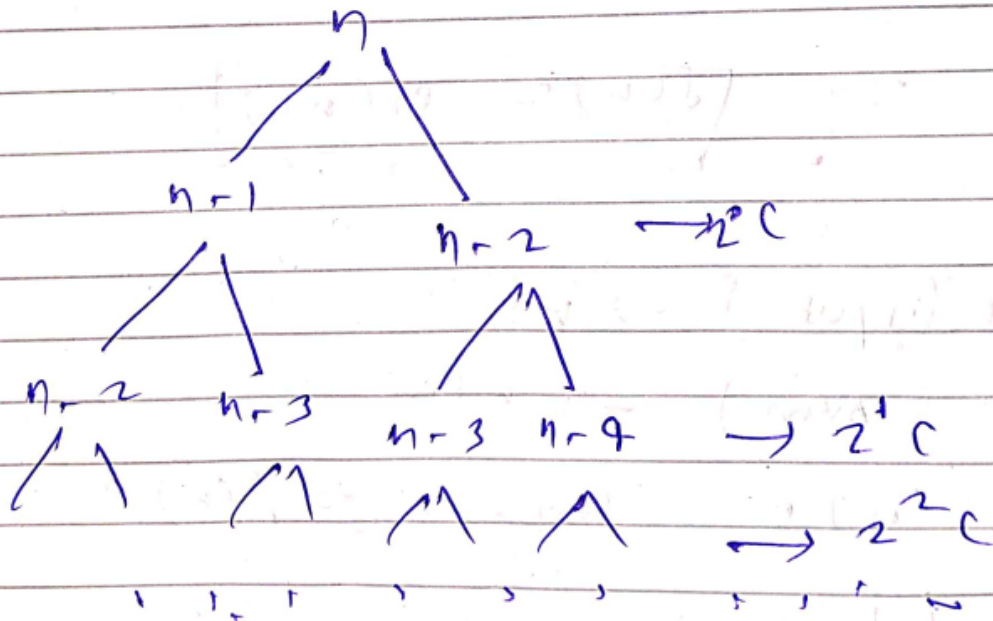 n
n-1
n-2 → 2⁰C
n-2 n-3 n-3 n-4 → 2¹C
→ 2²C